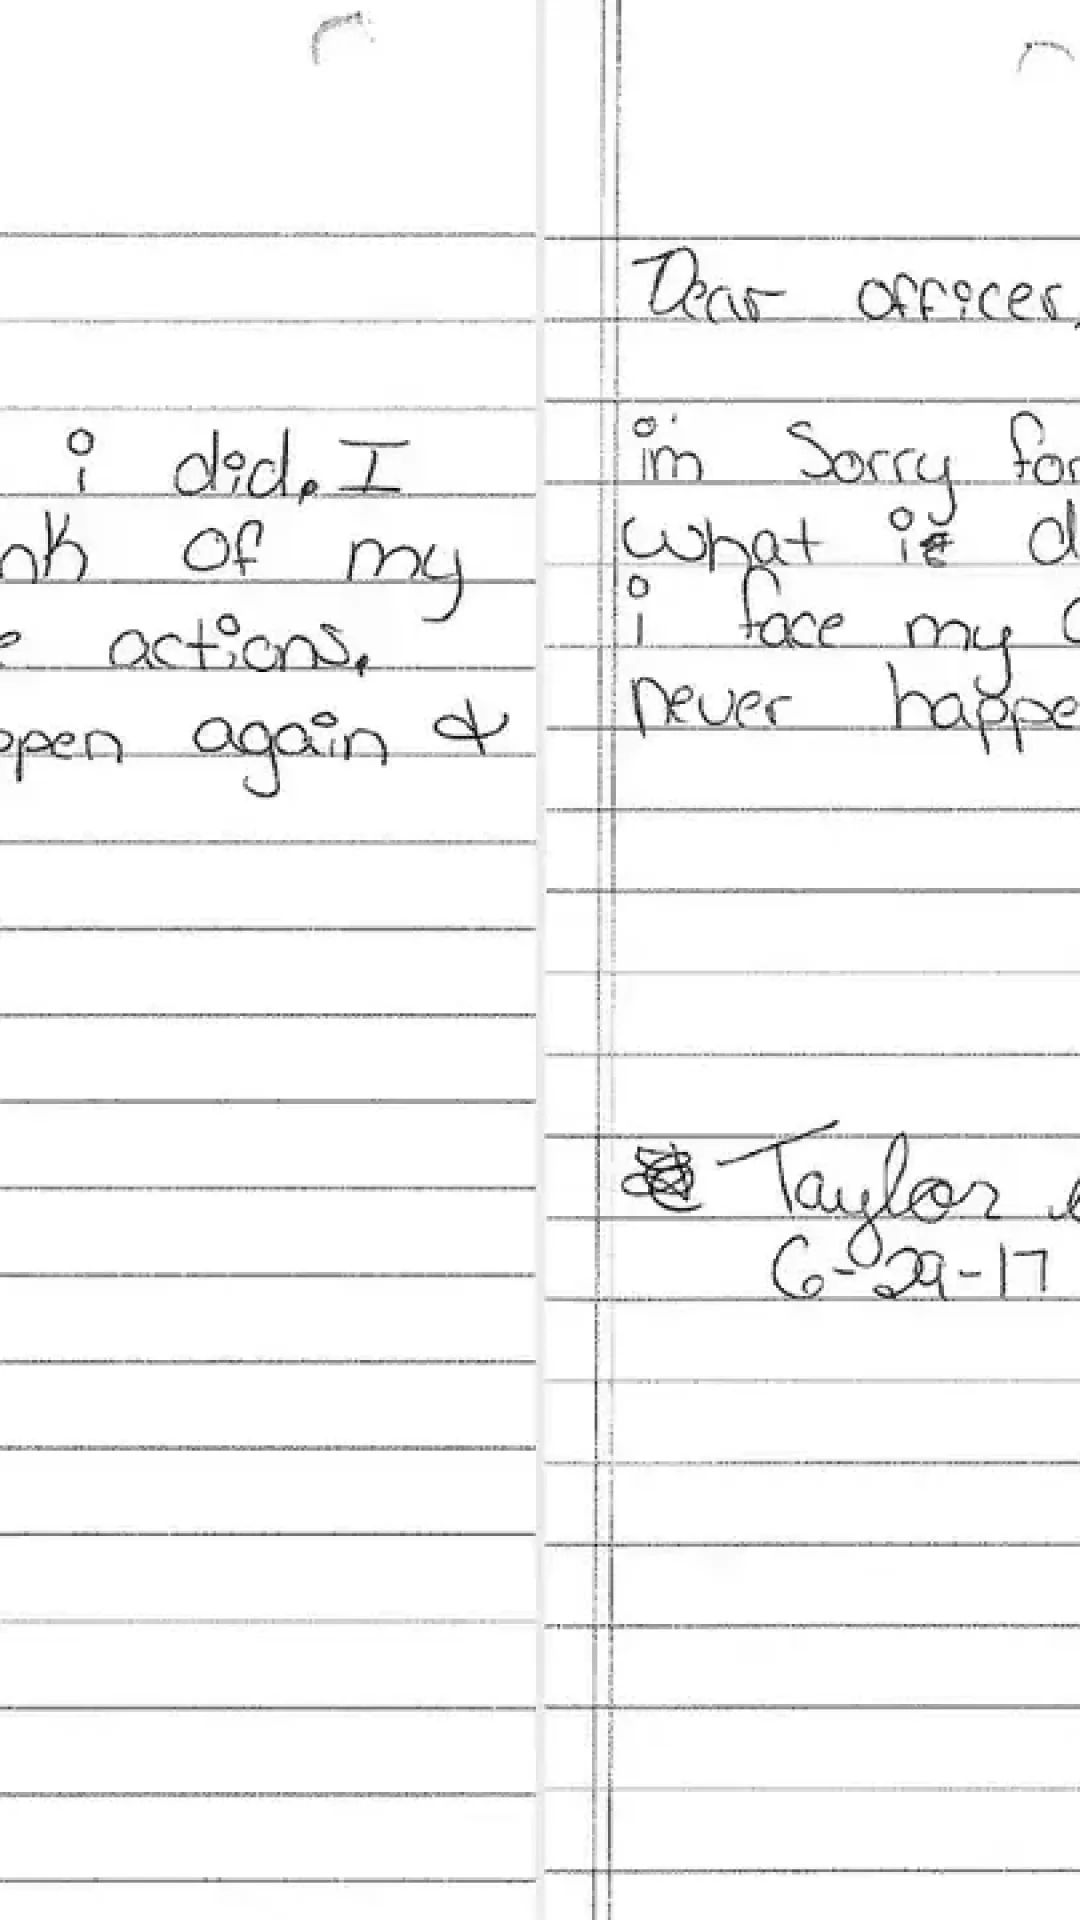 i did. I
nk of my
e actions.
ppen again &
Dear officer,
im Sorry for
what i d
i face my
never happe
Taylor
6-29-17